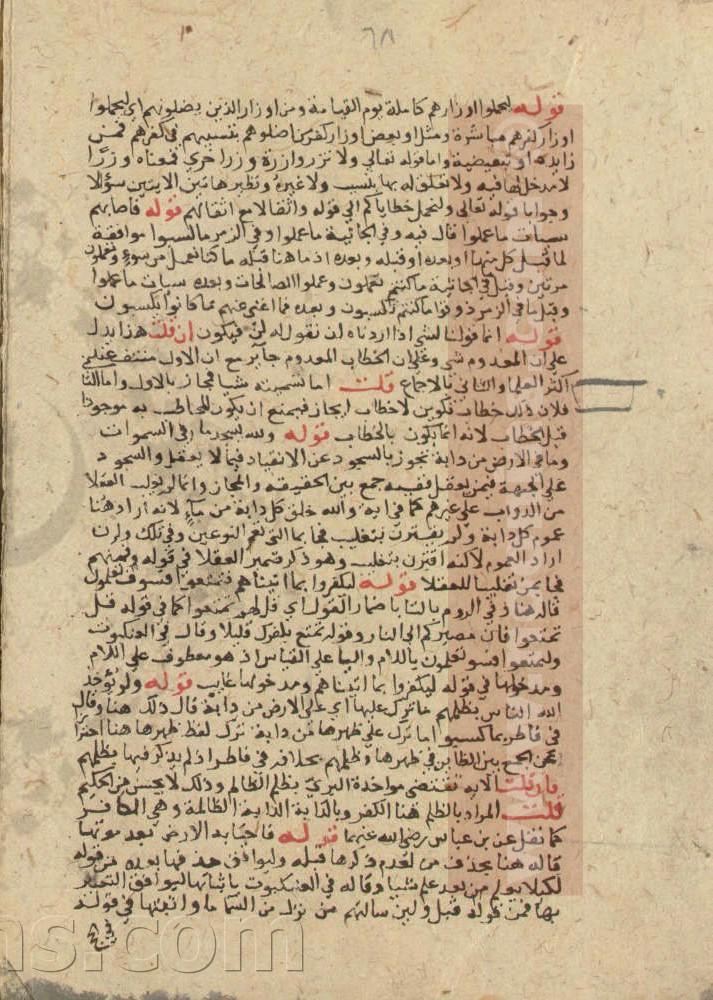 ٦٨
قوله ليحملوا اوزارهم كاملة يوم القيامة ومن اوزار الذين يضلونهم اي ليحملوا
اوزار كفرهم مباشرة ومثل او بعض اوزار كفر من اضلوهم بتسببهم في كفرهم فمن
زايدة او تبعيضية واما قوله تعالى ولا تزر وازرة وزر اخري فمعناه وزرا
لا مدخل لها فيه ولا تعلق له بها بتسبب ولا غيره ونظير هاتين الايتين سؤالا
وجوابا قوله تعالى ولنحمل خطاياكم الي قوله واثقالا مع اثقالهم قوله فاصابهم
سيات ما عملوا قال فيه وفي الجاثية ما عملوا وفي الزمر ما كسبوا موافقة
لما قبل كل منها او بعده او قبله وبعده اذ ما هنا قبله ما كنا نعمل من سوء وتعملون
مرتين وقبل في الجاثية ما كنتم تعملون وعملوا الصالحات وبعده سيات ما عملوا
وقبل ما في الزمر ذوقوا ما كنتم تكسبون وبعده فما اغني عنهم ما كانوا يكسبون
قوله انما قولنا لشي اذا اردناه ان نقول له كن فيكون ان قلت هذا يدل
على ان المعدوم شي وعلى ان خطاب المعدوم جايز مع ان الاول منتف عند
اكثر العلما والثاني بالاجماع قلت اما تسميته شيا فمجاز بالاول واما الثا
فلان ذلك خطاب تكوين لا خطاب ايجاز فيمتنع ان يكون المخاطب به موجودا
قبل الخطاب لانه انما يكون بالخطاب قوله ولله يسجد ما في السموات
وما في الارض من دابة تجوز بالسجود عن الانقياد فيما لا يعقل والسجود
على الجبهة فيمن يعقل ففيه جمع بين الحقيقة والمجاز وانما لم يغلب العقلا
من الدواب على غيرهم كما في اية والله خلق كل دابة من ماء لانه اراد هنا
عموم كل دابة ولم يقترن بتغليب فجا بما التي تعم النوعين وفي تلك وان
اراد العموم لاكنه اقترن بتغليب وهو ذكر ضمير العقلا في قوله فمنهم
فجا بمن تغليبا للعقلا قوله ليكفروا بما اتيناهم فتمتعوا فسوف تعلمون
قاله هنا وفي الروم بالتا باضمار القول اي قل لهم تمتعوا كما في قوله قل
تمتعوا فان مصيركم الى النار وقوله تمتع بكفرك قليلا وقال في العنكبوت
وليتمتعوا فسوف يعلمون باللام واليا على القياس اذ هو معطوف على اللام
ومدخولها في قوله ليكفروا بما اتيناهم ومدخولها غايب قوله ولو يؤاخذ
الله الناس بظلمهم ما ترك عليها اي على الارض من دابة قال ذلك هنا وقال
في فاطر بما كسبوا ما ترك على ظهرها من دابة ترك لفظ ظهرها هنا احترا
عن الجمع بين الظاين في ظهرها وظلمهم بخلافه في فاطر اذ لم يذكر فيها بظلمهم
فان قلت الاية تقتضي مواخذة البري بظلم الظالم وذلك لا يحسن من الحكيم
قلت المراد بالظلم هنا الكفر وبالدابة الدابة الظالمة وهي الكافر
كما نقل عن بن عباس رضي الله عنهما قوله فاحيا به الارض بعد موتها
قاله هنا بحذف من لعدم ذكرها قبله وليوافق حذفها بعده من قوله
لكيلا يعلم من بعد علم شيا وقاله في العنكبوت باثباتها ليوافق التعبير
بها في قوله قبل ولين سالتهم من نزل من السما ما واثبتها في قوله
في الحج